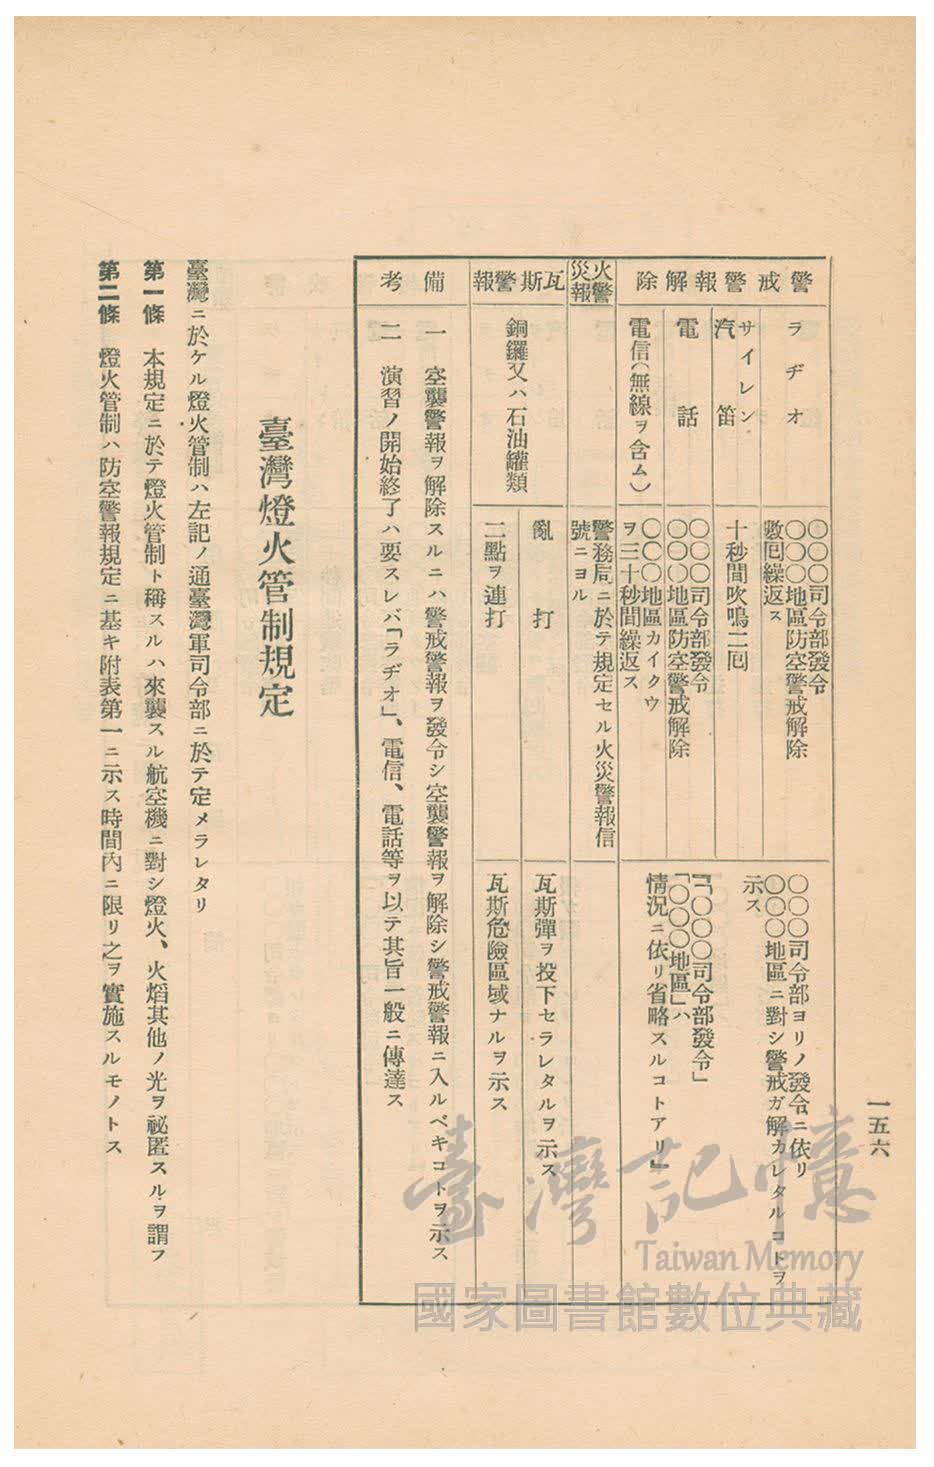 一五六
警戒警報解除
ラヂオ
〇〇〇司令部發令
〇〇〇地區防空警戒解除
數囘繰返ス
〇〇〇司令部ヨリノ發令ニ依リ
〇〇〇地區ニ對シ警戒ガ解カレタルコトヲ
示ス
サイレン
汽笛
十秒間吹鳴二囘
電話
〇〇〇司令部發令
〇〇〇地區防空警戒解除
『「〇〇〇司令部發令」
「〇〇〇地區」ハ
情況ニ依リ省略スルコトアリ』
電信(無線ヲ含ム)
〇〇〇地區カイクウ
ヲ三十秒間繰返ス
火災警報
警務局ニ於テ規定セル火災警報信
號ニヨル
瓦斯警報
銅鑼又ハ石油罐類
亂打
瓦斯彈ヲ投下セラレタルヲ示ス
二點ヲ連打
瓦斯危險區域ナルヲ示ス
備考
一 空襲警報ヲ解除スルニハ警戒警報ヲ發令シ空襲警報ヲ解除シ警戒警報ニ入ルベキコトヲ示ス
二 演習ノ開始終了ハ要スレバ「ラヂオ」、電信、電話等ヲ以テ其旨一般ニ傳達ス
臺灣燈火管制規定
臺灣ニ於ケル燈火管制ハ左記ノ通臺灣軍司令部ニ於テ定メラレタリ
第一條 本規定ニ於テ燈火管制ト稱スルハ來襲スル航空機ニ對シ燈火、火焰其他ノ光ヲ祕匿スルヲ謂フ
第二條 燈火管制ハ防空警報規定ニ基キ附表第一ニ示ス時間內ニ限リ之ヲ實施スルモノトス
臺灣記憶
Taiwan Memory
國家圖書館數位典藏